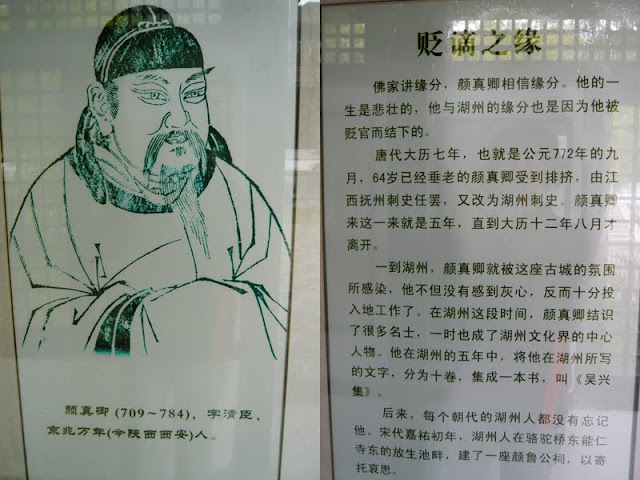 颜真卿(709～784)，字清臣，
京兆万年(今陕西西安)人。
贬谪之缘
佛家讲缘分，颜真卿相信缘分。他的一
生是悲壮的，他与湖州的缘分也是因为他被
贬官而结下的。
唐代大历七年，也就是公元772年的九
月，64岁已经垂老的颜真卿受到排挤，由江
西抚州刺史任罢，又改为湖州刺史。颜真卿
来这一来就是五年，直到大历十二年八月才
离开。
一到湖州，颜真卿就被这座古城的氛围
所感染，他不但没有感到灰心，反而十分投
入地工作了。在湖州这段时间，颜真卿结识
了很多名士，一时也成了湖州文化界的中心
人物。他在湖州的五年中，将他在湖州所写
的文字，分为十卷，集成一本书，叫《吴兴
集》。
后来，每个朝代的湖州人都没有忘记
他。宋代嘉祐初年，湖州人在骆驼桥东能仁
寺东的放生池畔，建了一座颜鲁公祠，以寄
托哀思。